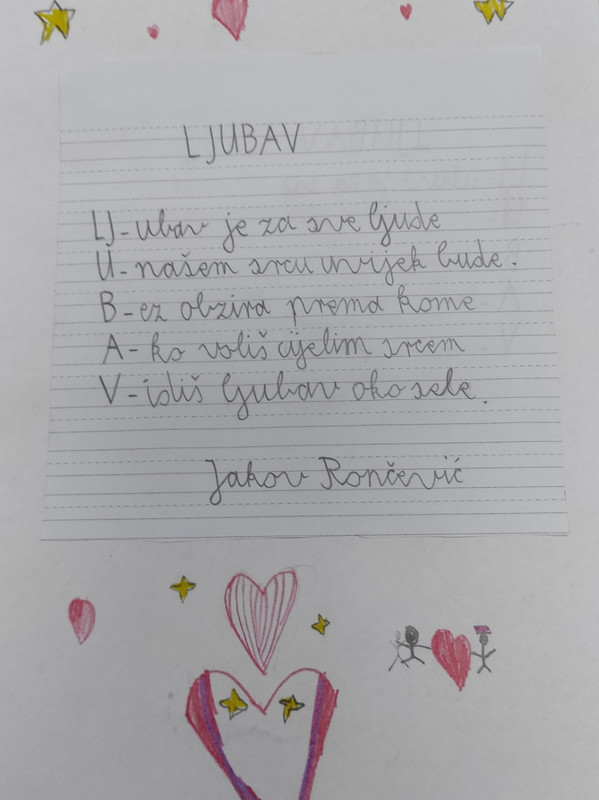 LJUBAV
LJ-ubav je za sve ljude
U-našem srcu uvijek bude.
B-ez obzira prema kome
A-ko voliš cijelim srcem
V-idiš ljubav oko sebe.
Jakov Rončević